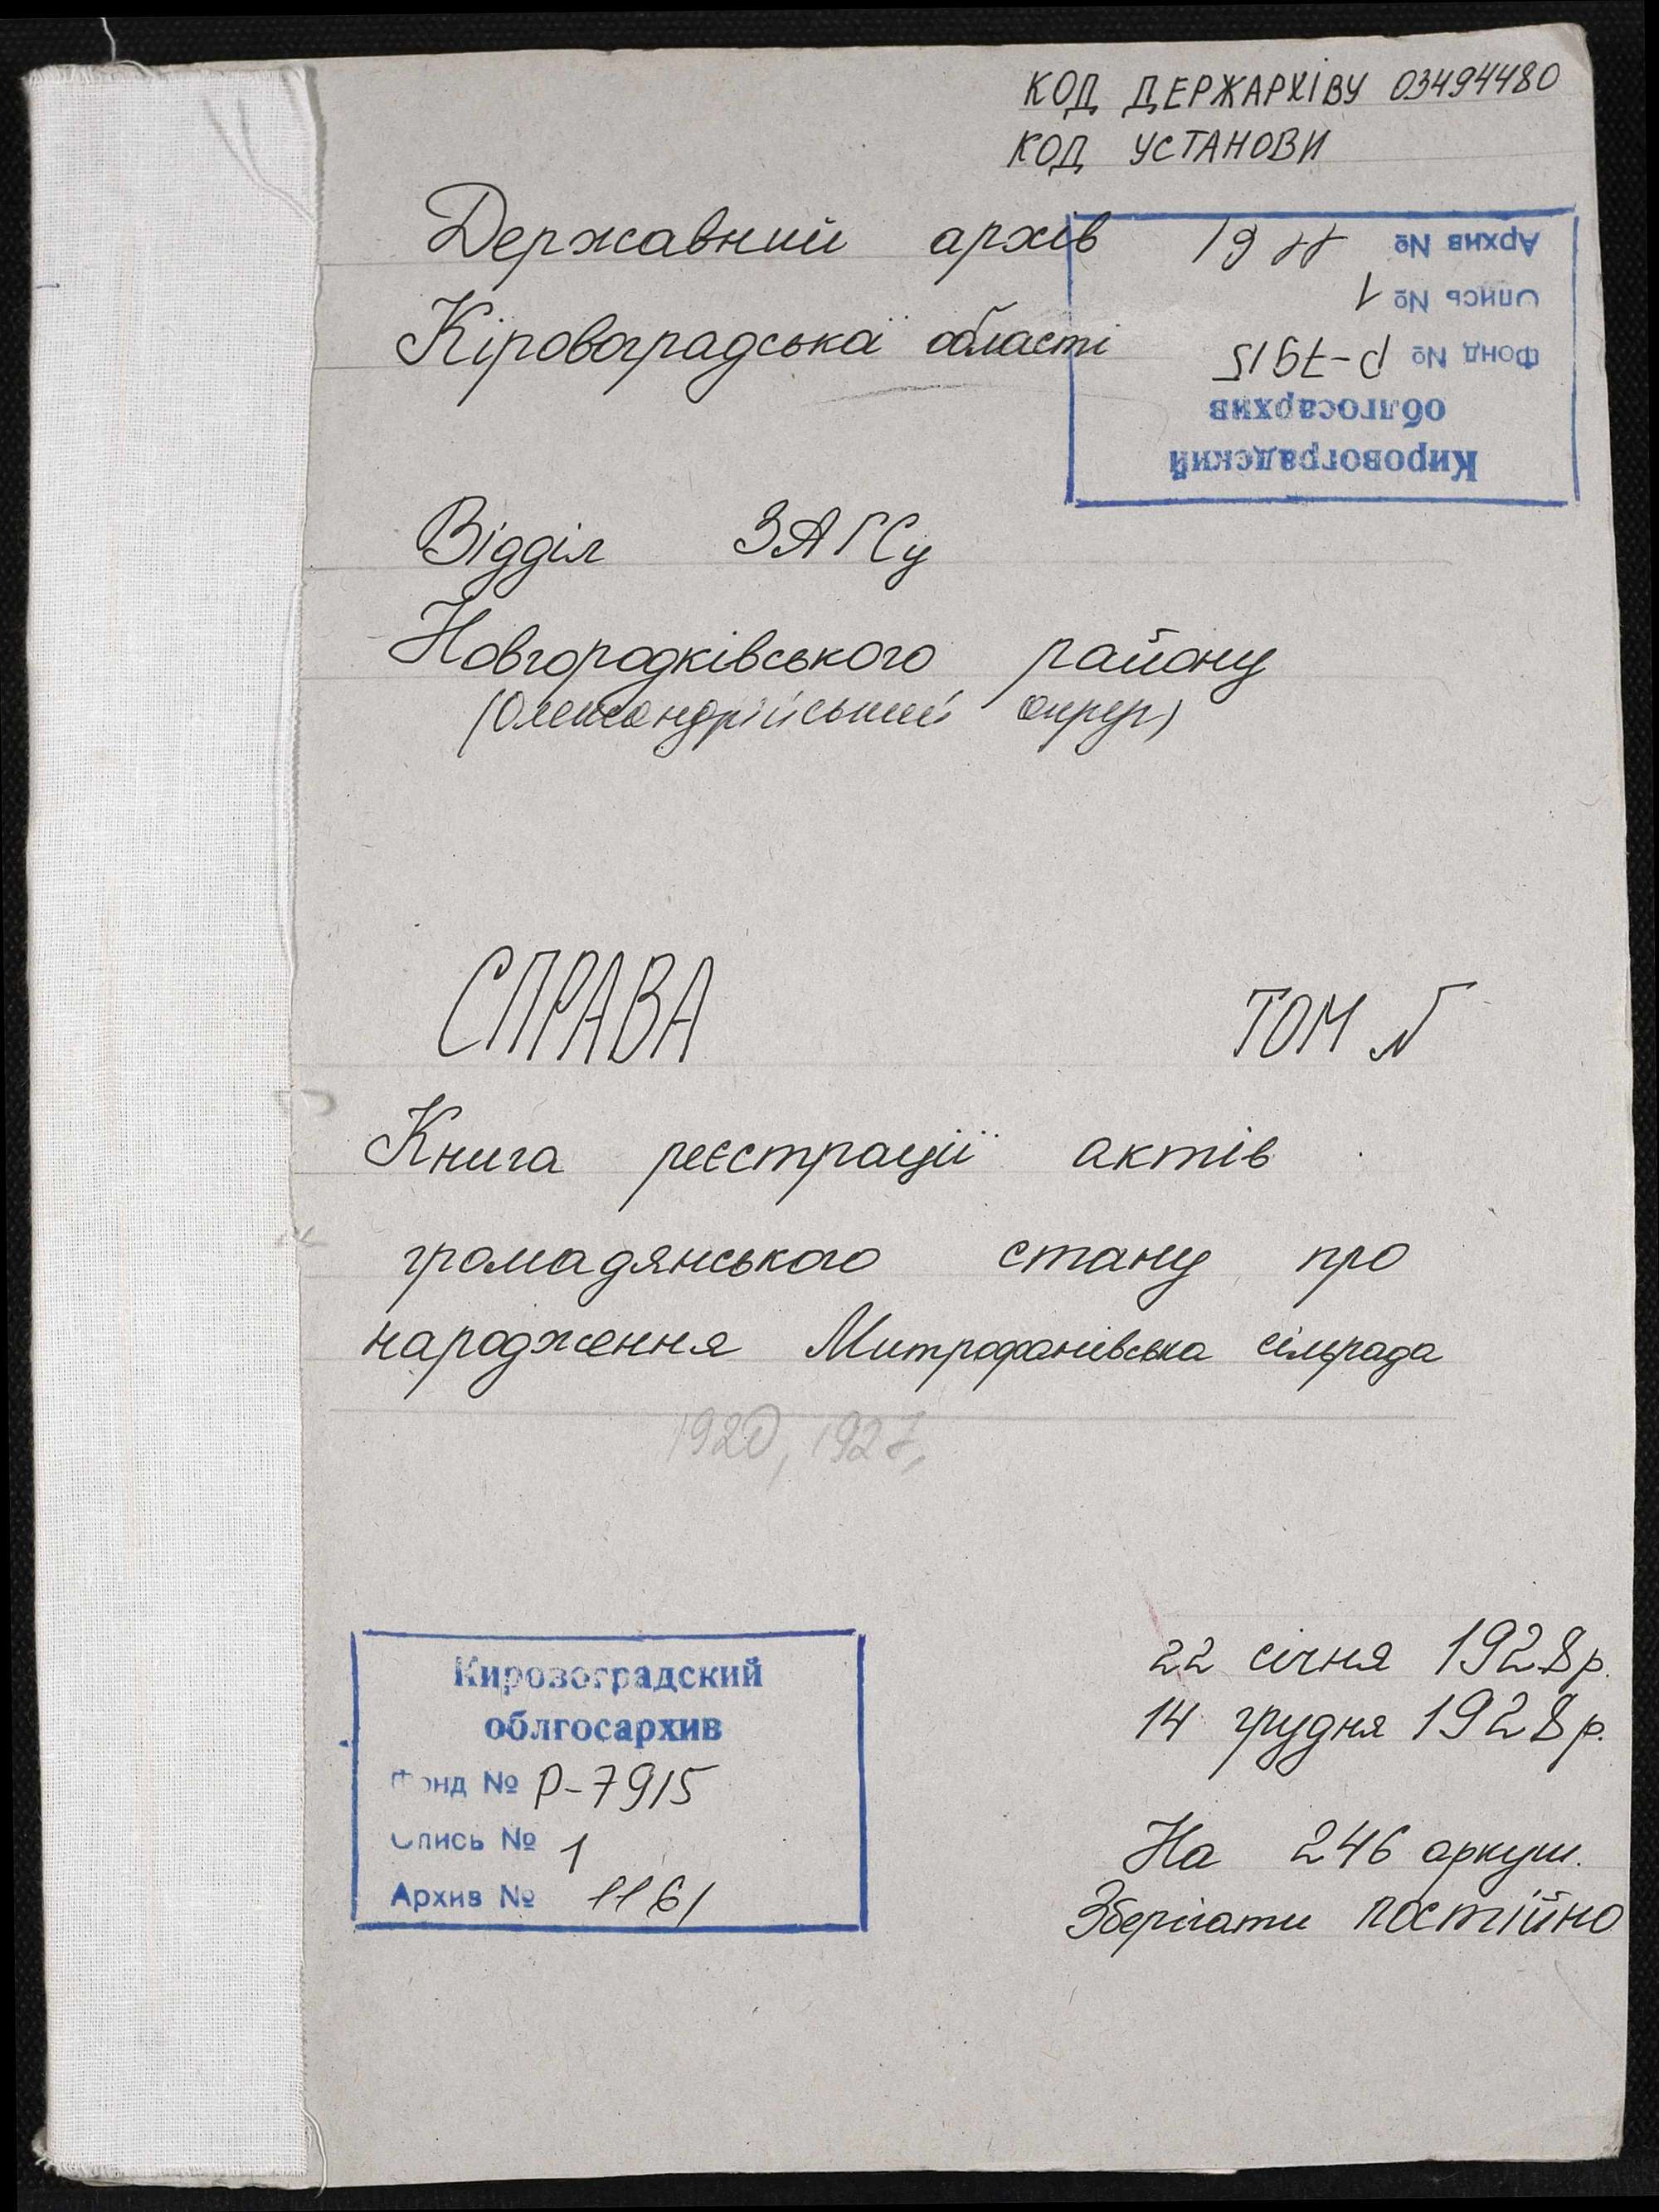 КОД ДЕРЖАРХІВУ 03494480
КОД УСТАНОВИ
Державний архів
Кіровоградської області
Кировоградский
облгосархив
Фонд № Р-7915
Опись № 1
Архив № 1161
Відділ ЗАГСу
Новгородківського району
(Олександрійський округ)
СПРАВА ТОМ №
Книга реєстрації актів
громадянського стану про
народження Митрофанівська сільрада
1920, 1927,
22 січня 1928 р.
14 грудня 1928 р.
На 246 аркуш.
Зберігати постійно
Кировоградский
облгосархив
Фонд № Р-7915
Опись № 1
Архив № 1161